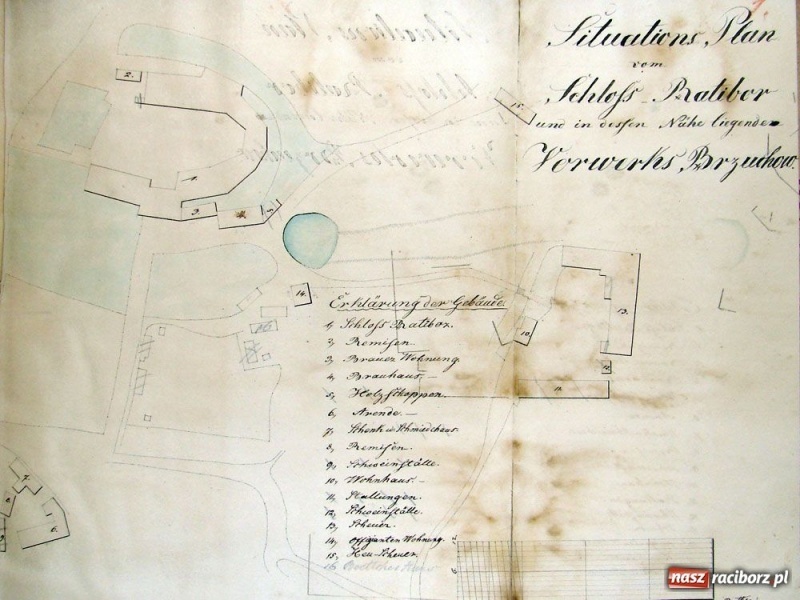 Situations Plan
vom
Schloss Ratibor
und in dessen Nähe liegenden
Vorwerks Brzuchow.
Erklärung der Gebäude.
1, Schloss Ratibor.
2, Remisen.
3, Brauer Wohnung.
4, Brauhaus. —
5, Holzschoppen.
6, Arende. —
7, Schenk u Schmiedehaus.
8, Remisen.
9, Schweinställe.
10, Wohnhaus. —
11, Stallungen.
12, Schweinställe.
13, Scheuer.
14, Offizianten Wohnung.
15, Heu-Scheuer.
16
2.
1
3.
4.
5
15.
14.
16
10.
13.
12
11.
7.
8.
6.
nasz raciborz.pl